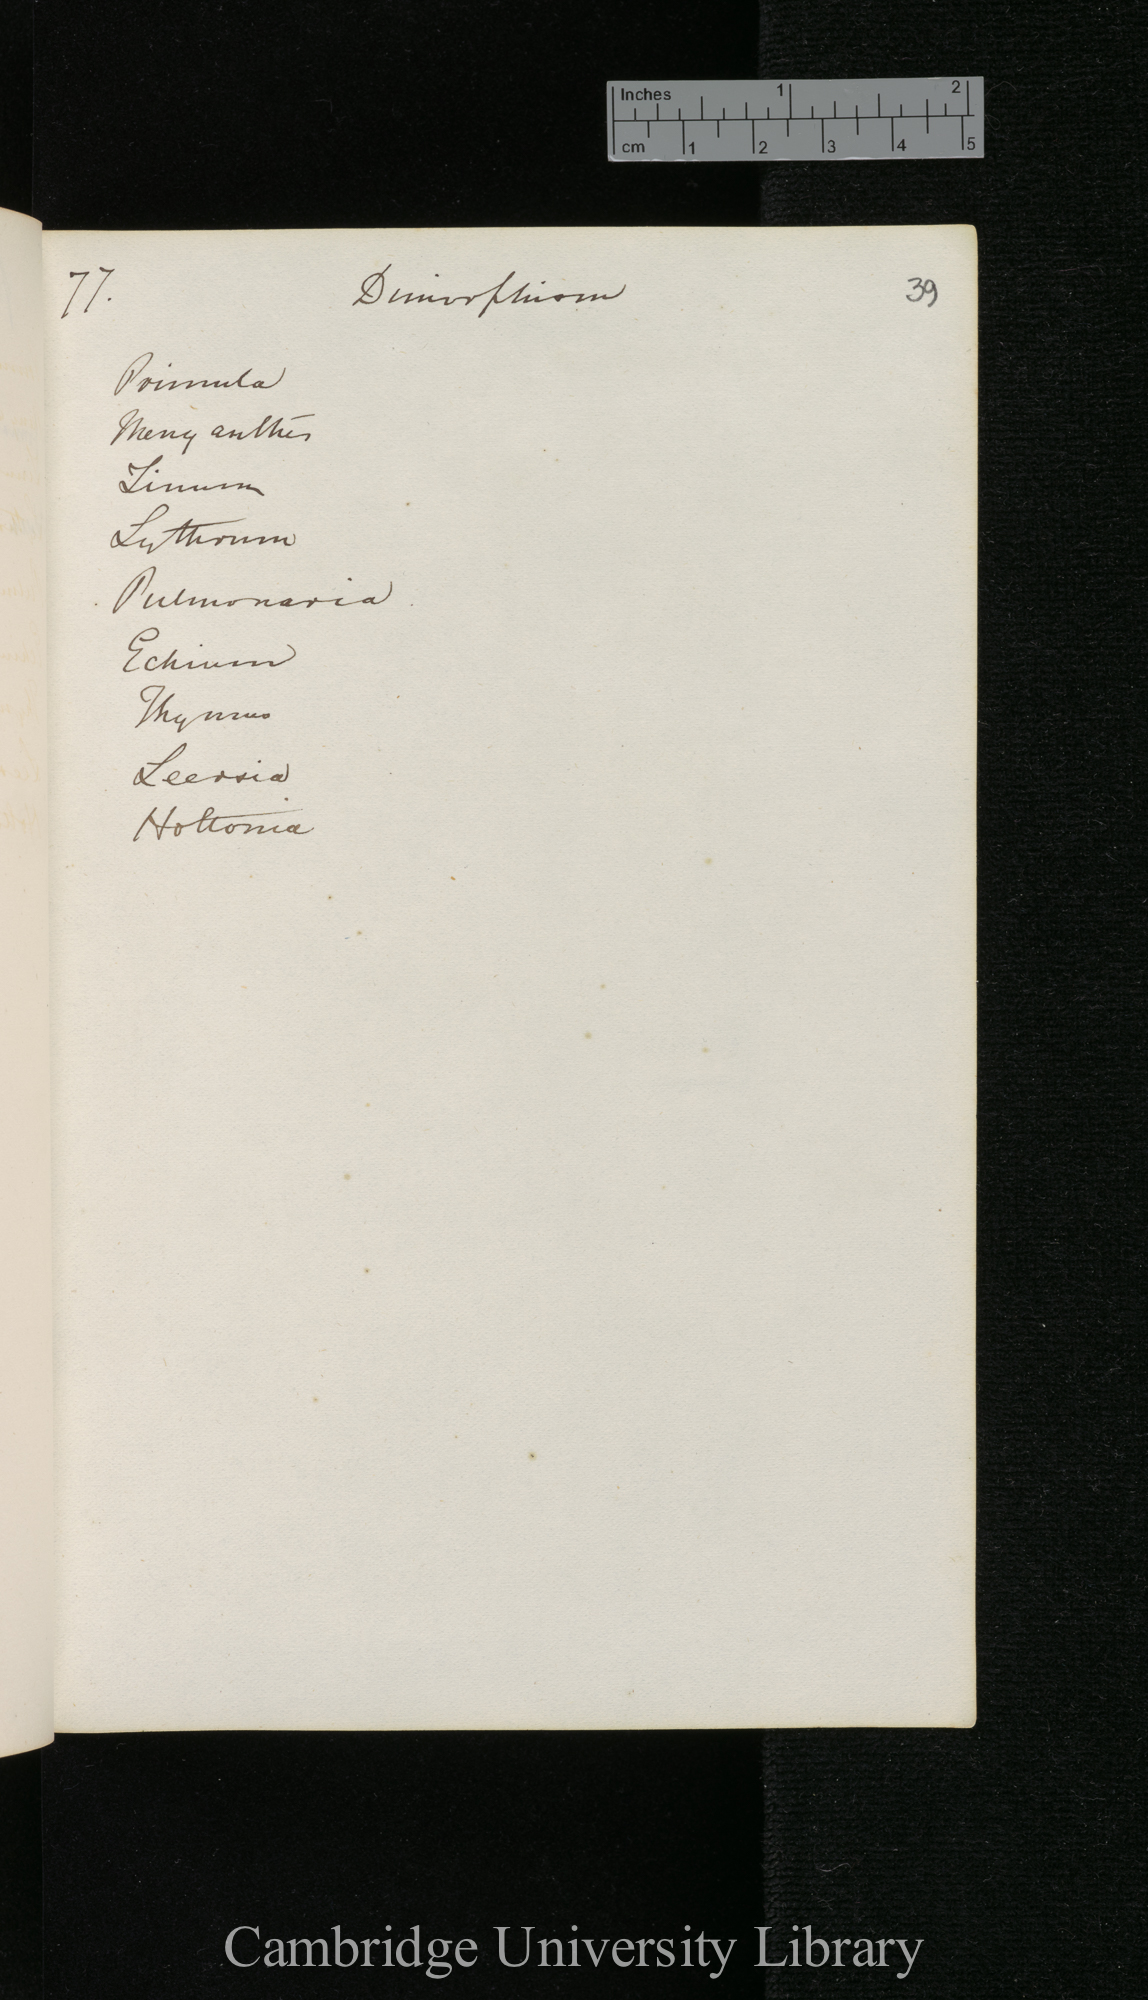 Inches 1 2
cm 1 2 3 4 5
77. Dimorphism 39
Primula
Menyanthes
Linum
Lythrum
Pulmonaria
Echium
Thymus
Leersia
Hottonia
Cambridge University Library